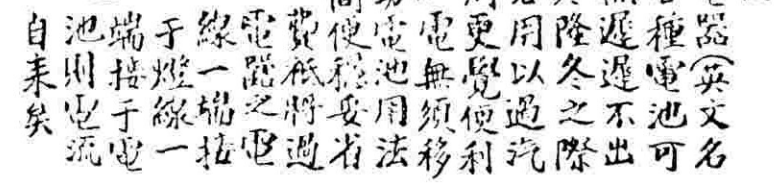 器(英文名
種電池可
遲遲不出
隆冬之際
用以過汽
更覺便利
電無須移
電池用法
便穩妥省
費祇將過
電器之電
線一端接
于燈線一
端接于電
池則電流
自来矣